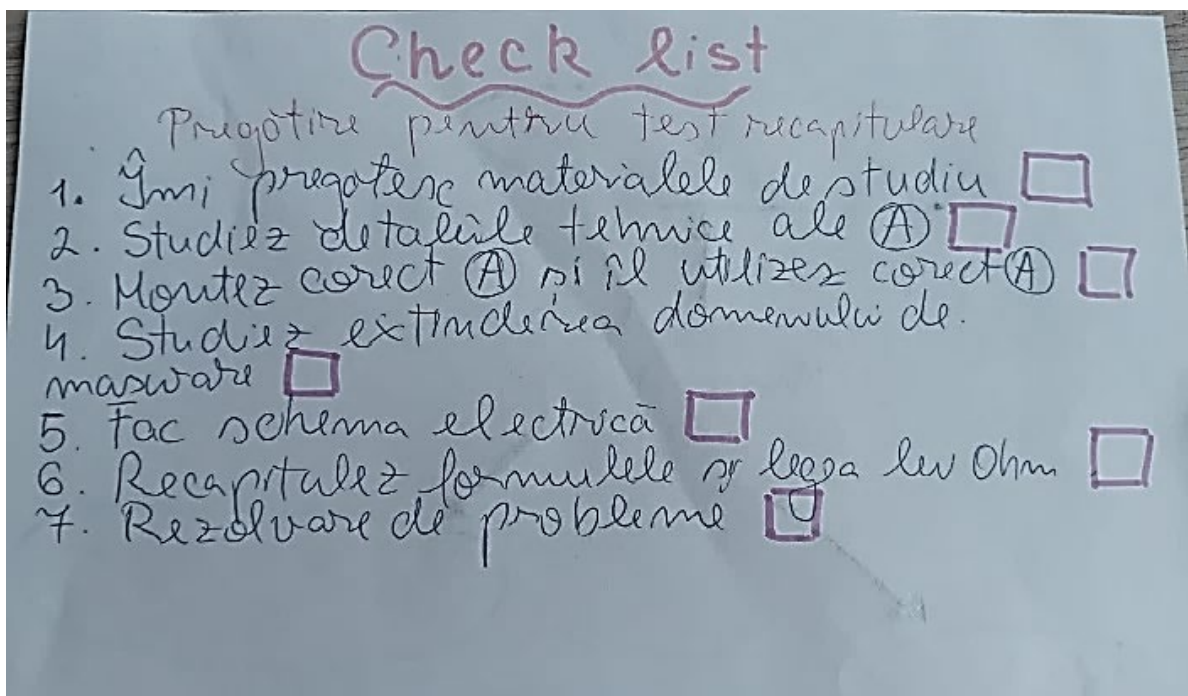 Check list
Pregătire pentru test recapitulare
1. Îmi pregătesc materialele de studiu
2. Studiez detaliile tehnice ale Ⓐ
3. Montez corect Ⓐ și îl utilizez corect Ⓐ
4. Studiez extinderea domeniului de
masurare
5. Fac schema electrică
6. Recapitulez formulele și legea lui Ohm
7. Rezolvare de probleme